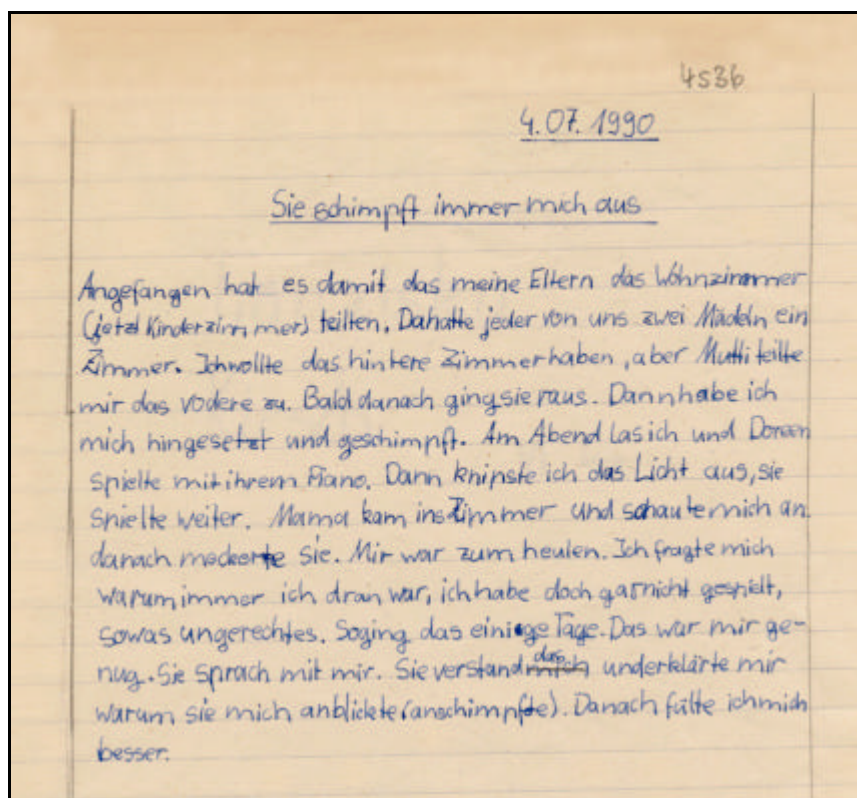 4536
4.07.1990
Sie schimpft immer mich aus
Angefangen hat es damit das meine Eltern das Wohnzimmer
(jetzt Kinderzimmer) teilten. Dahatte jeder von uns zwei Mädeln ein
Zimmer. Ichwollte das hintere Zimmer haben, aber Mutti teilte
mir das vodere zu. Bald danach ging sie raus. Dann habe ich
mich hingesetzt und geschimpft. Am Abend las ich und Doreen
spielte mit ihrem Piano. Dann knipste ich das Licht aus, sie
spielte weiter. Mama kam ins Zimmer und schaute mich an
danach meckerte sie. Mir war zum heulen. Ich fragte mich
warum immer ich dran war, ich habe doch garnicht gespielt,
sowas ungerechtes. Soging das einige Tage. Das war mir ge-
nug. Sie sprach mit mir. Sie verstand das und erklärte mir
warum sie mich anblickte (anschimpfte). Danach fülte ich mich
besser.